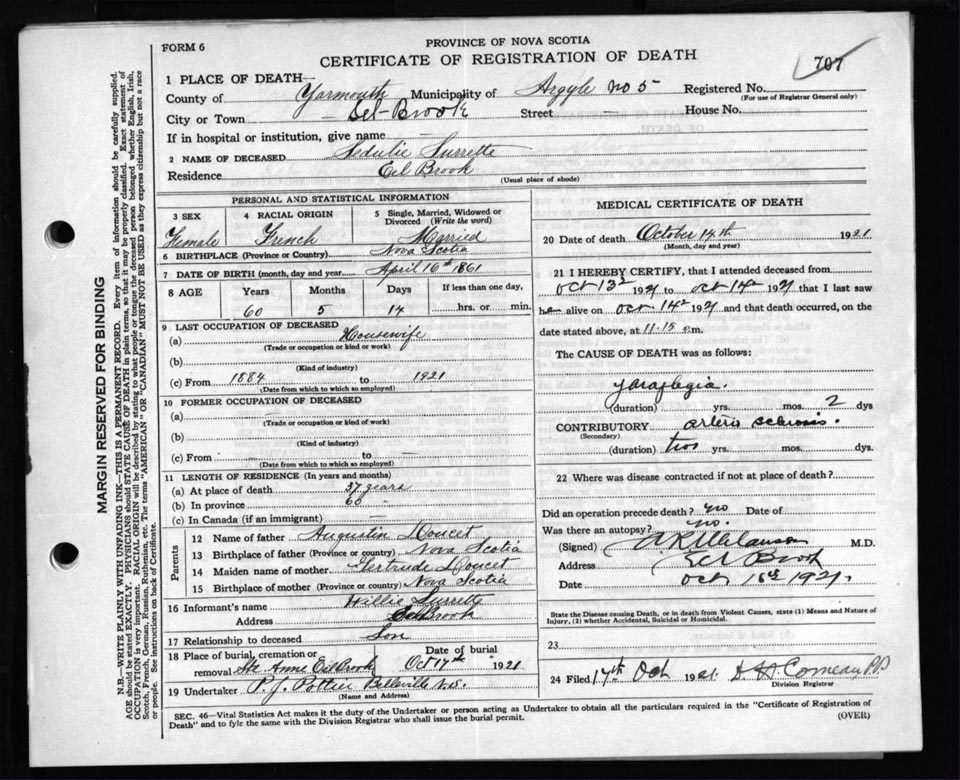 FORM 6
PROVINCE OF NOVA SCOTIA
CERTIFICATE OF REGISTRATION OF DEATH
707
1 PLACE OF DEATH—
County of Yarmouth Municipality of Argyle no 5 Registered No.
(For use of Registrar General only)
City or Town Eel-Brook Street — House No.
If in hospital or institution, give name —
2 NAME OF DECEASED Sedulie Surrette
Residence Eel Brook
(Usual place of abode)
PERSONAL AND STATISTICAL INFORMATION
3 SEX 4 RACIAL ORIGIN 5 Single, Married, Widowed or Divorced (Write the word)
Female French Married
6 BIRTHPLACE (Province or Country) Nova Scotia
7 DATE OF BIRTH (month, day and year) April 16th 1861
8 AGE Years Months Days If less than one day,
60 5 14 hrs. or min.
9 LAST OCCUPATION OF DECEASED
(a) Housewife
(Trade or occupation or kind or work)
(b)
(Kind of industry)
(c) From 1884 to 1921
(Date from which to which employed)
10 FORMER OCCUPATION OF DECEASED
(a) —
(Trade or occupation or kind of work)
(b)
(Kind of industry)
(c) From — to —
(Date from which to which employed)
11 LENGTH OF RESIDENCE (In years and months)
(a) At place of death 37 years
(b) In province 60
(c) In Canada (if an immigrant) —
Parents
12 Name of father Augustin Doucet
13 Birthplace of father (Province or country) Nova Scotia
14 Maiden name of mother Gertrude Doucet
15 Birthplace of mother (Province or country) Nova Scotia
16 Informant's name Willie Surrette
Address Eel Brook
17 Relationship to deceased Son
18 Place of burial, cremation or removal Ste Anne Eel Brook Date of burial Oct 17th 1921
19 Undertaker P. J. Pottier Belleville N.S.
(Name and Address)
MEDICAL CERTIFICATE OF DEATH
20 Date of death October 14th 1921
(Month, day and year)
21 I HEREBY CERTIFY, that I attended deceased from
Oct 13 1921 to Oct 14 1921 that I last saw
alive on Oct 14 1921 and that death occurred, on
date stated above, at 11-15 m.
The CAUSE OF DEATH was as follows:
(duration) yrs. mos. 2 dys
CONTRIBUTORY arterio sclerosis.
(Secondary)
(duration) two yrs. mos. dys.
22 Where was disease contracted if not at place of death?
Did an operation precede death? no Date of
Was there an autopsy? no.
(Signed) M.D.
Address Eel Brook
Date Oct 16 1921.
State the Disease causing Death, or in death from Violent Causes, state (1) Means and Nature of Injury, (2) whether Accidental, Suicidal or Homicidal.
23
24 Filed 17th Oct 1921 Comeau
Division Registrar
SEC. 46—Vital Statistics Act makes it the duty of the Undertaker or person acting as Undertaker to obtain all the particulars required in the "Certificate of Registration of
Death" and to fyle the same with the Division Registrar who shall issue the burial permit.
(OVER)
MARGIN RESERVED FOR BINDING
N.B.—WRITE PLAINLY WITH UNFADING INK—THIS IS A PERMANENT RECORD. Every item of information should be carefully supplied.
AGE should be stated EXACTLY. PHYSICIANS should STATE CAUSE OF DEATH in plain terms, so that it may be properly classified. Exact statement of
OCCUPATION is very important. RACIAL ORIGIN will be described by stating to what people or tongue the deceased person belonged whether English, Irish,
Scotch, French, German, Russian, Ruthenian, etc. The terms "AMERICAN" or "CANADIAN" MUST NOT BE USED as they express citizenship but not a race
or people. See instructions on back of Certificate.